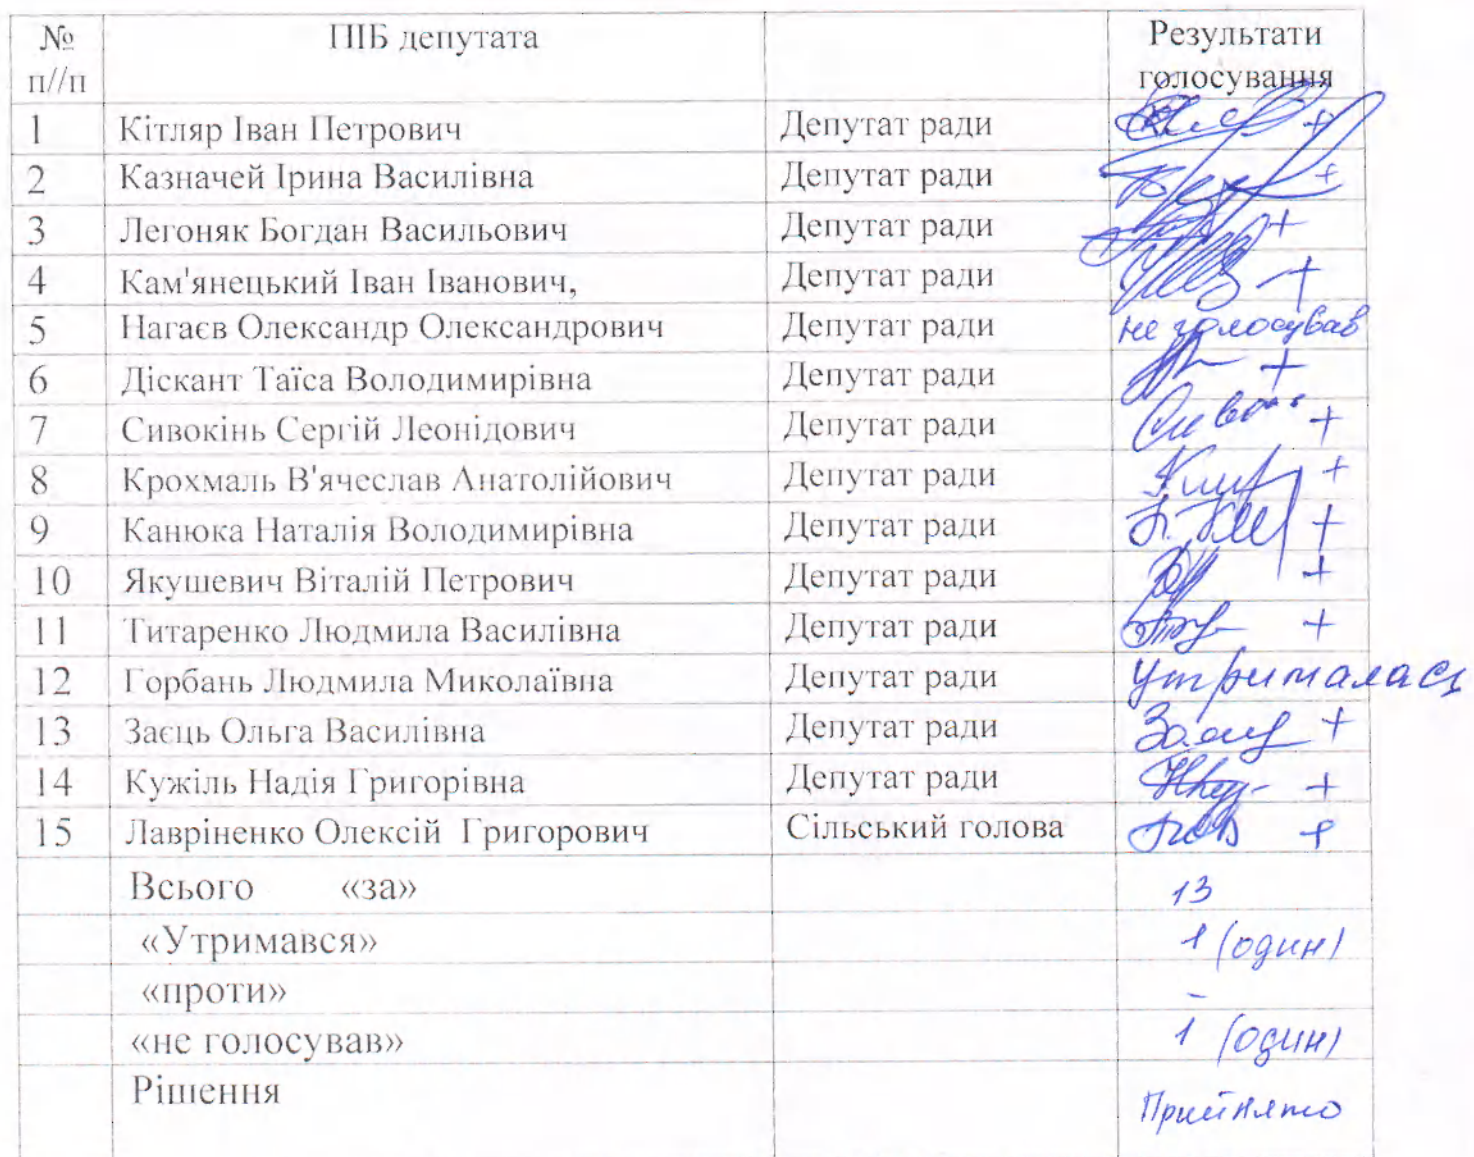 № п//п ПІБ депутата Результати голосування
1 Кітляр Іван Петрович Депутат ради +
2 Казначей Ірина Василівна Депутат ради +
3 Легоняк Богдан Васильович Депутат ради +
4 Кам'янецький Іван Іванович, Депутат ради +
5 Нагаєв Олександр Олександрович Депутат ради не голосував
6 Діскант Таїса Володимирівна Депутат ради +
7 Сивокінь Сергій Леонідович Депутат ради +
8 Крохмаль В'ячеслав Анатолійович Депутат ради +
9 Канюка Наталія Володимирівна Депутат ради +
10 Якушевич Віталій Петрович Депутат ради +
11 Титаренко Людмила Василівна Депутат ради +
12 Горбань Людмила Миколаївна Депутат ради утрималась
13 Заєць Ольга Василівна Депутат ради +
14 Кужіль Надія Григорівна Депутат ради +
15 Лавріненко Олексій Григорович Сільський голова +
Всього «за» 13
«Утримався» 1 (один)
«проти» -
«не голосував» 1 (один)
Рішення Прийнято